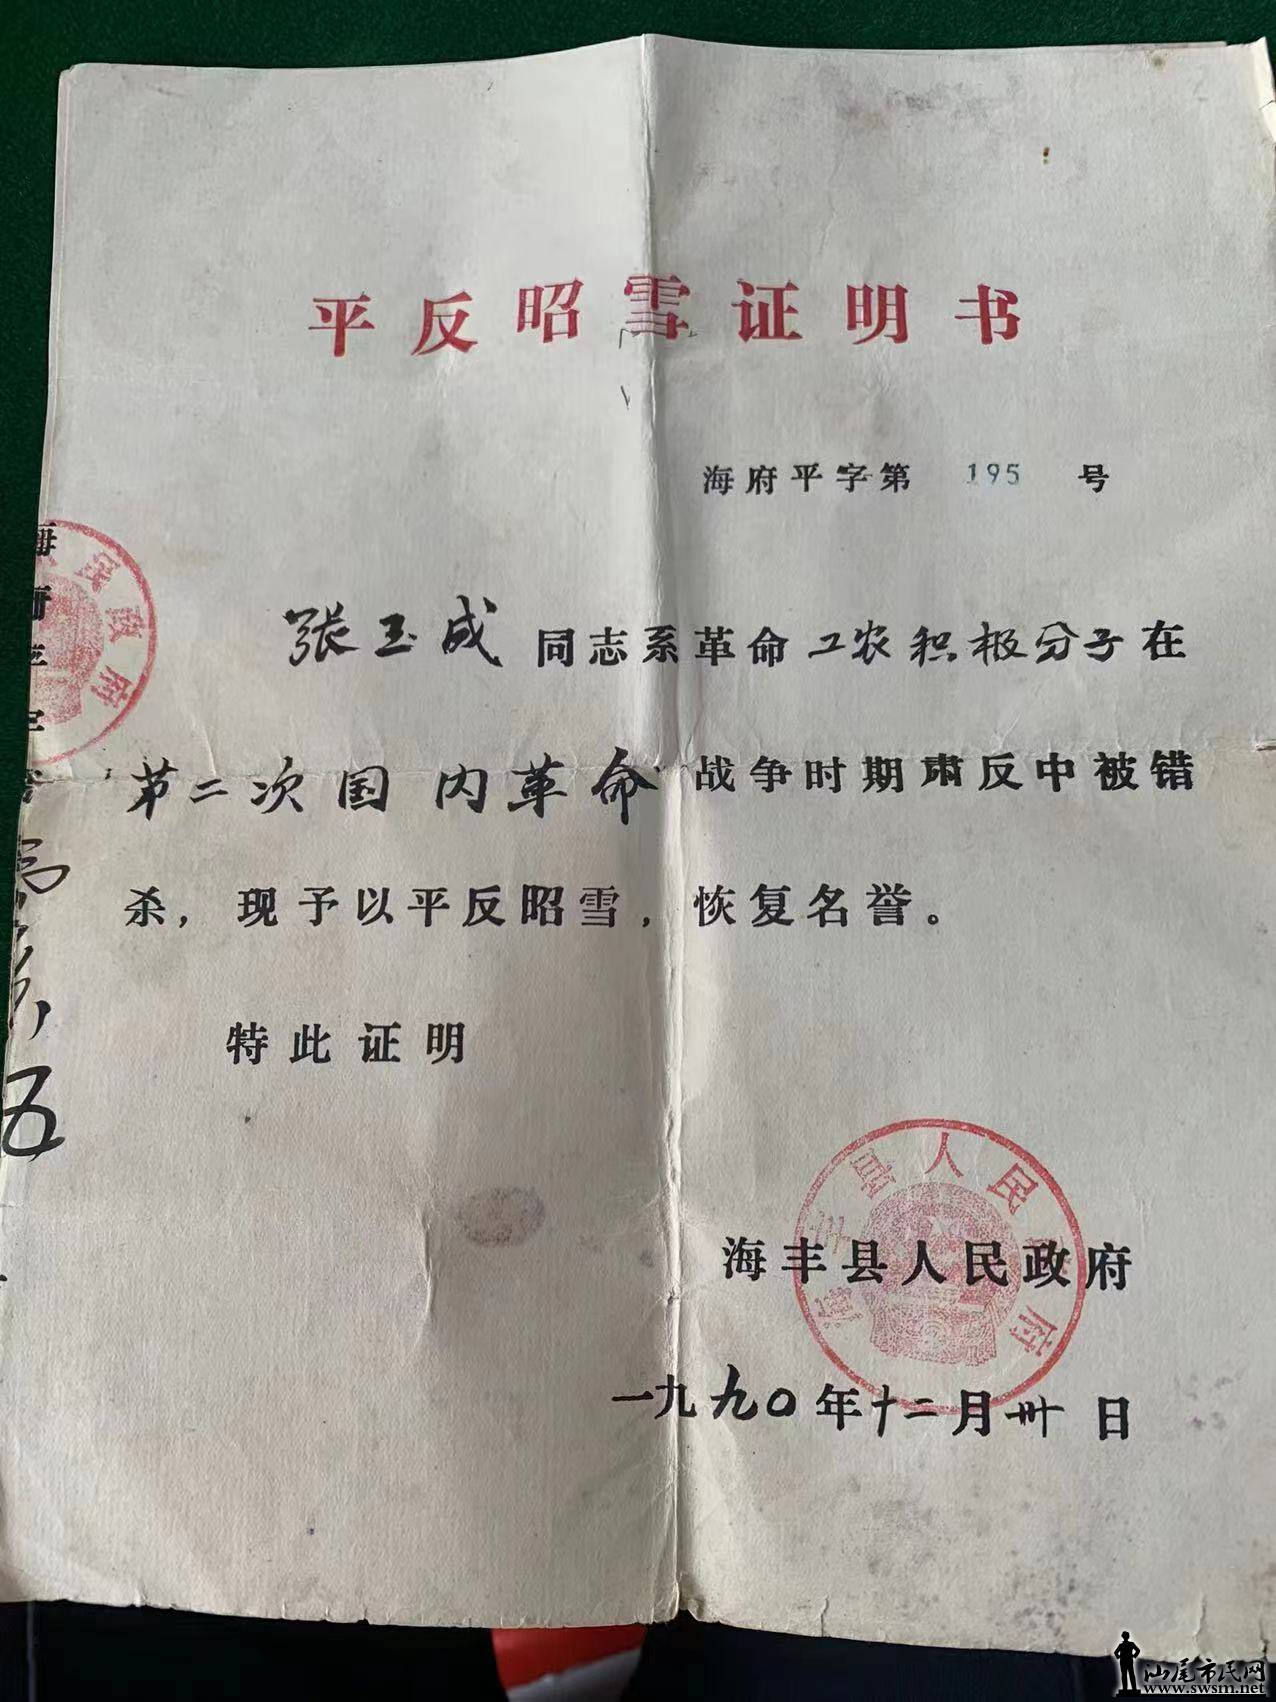 平反昭雪证明书
海府平字第 195 号
張玉成同志系革命工农积极分子在
第二次国内革命战争时期肃反中被错
杀，现予以平反昭雪，恢复名誉。
特此证明
海丰县人民政府
一九九〇年十二月卅日
海丰县人民政府
民政府
五
汕尾市民网
www.swsm.net